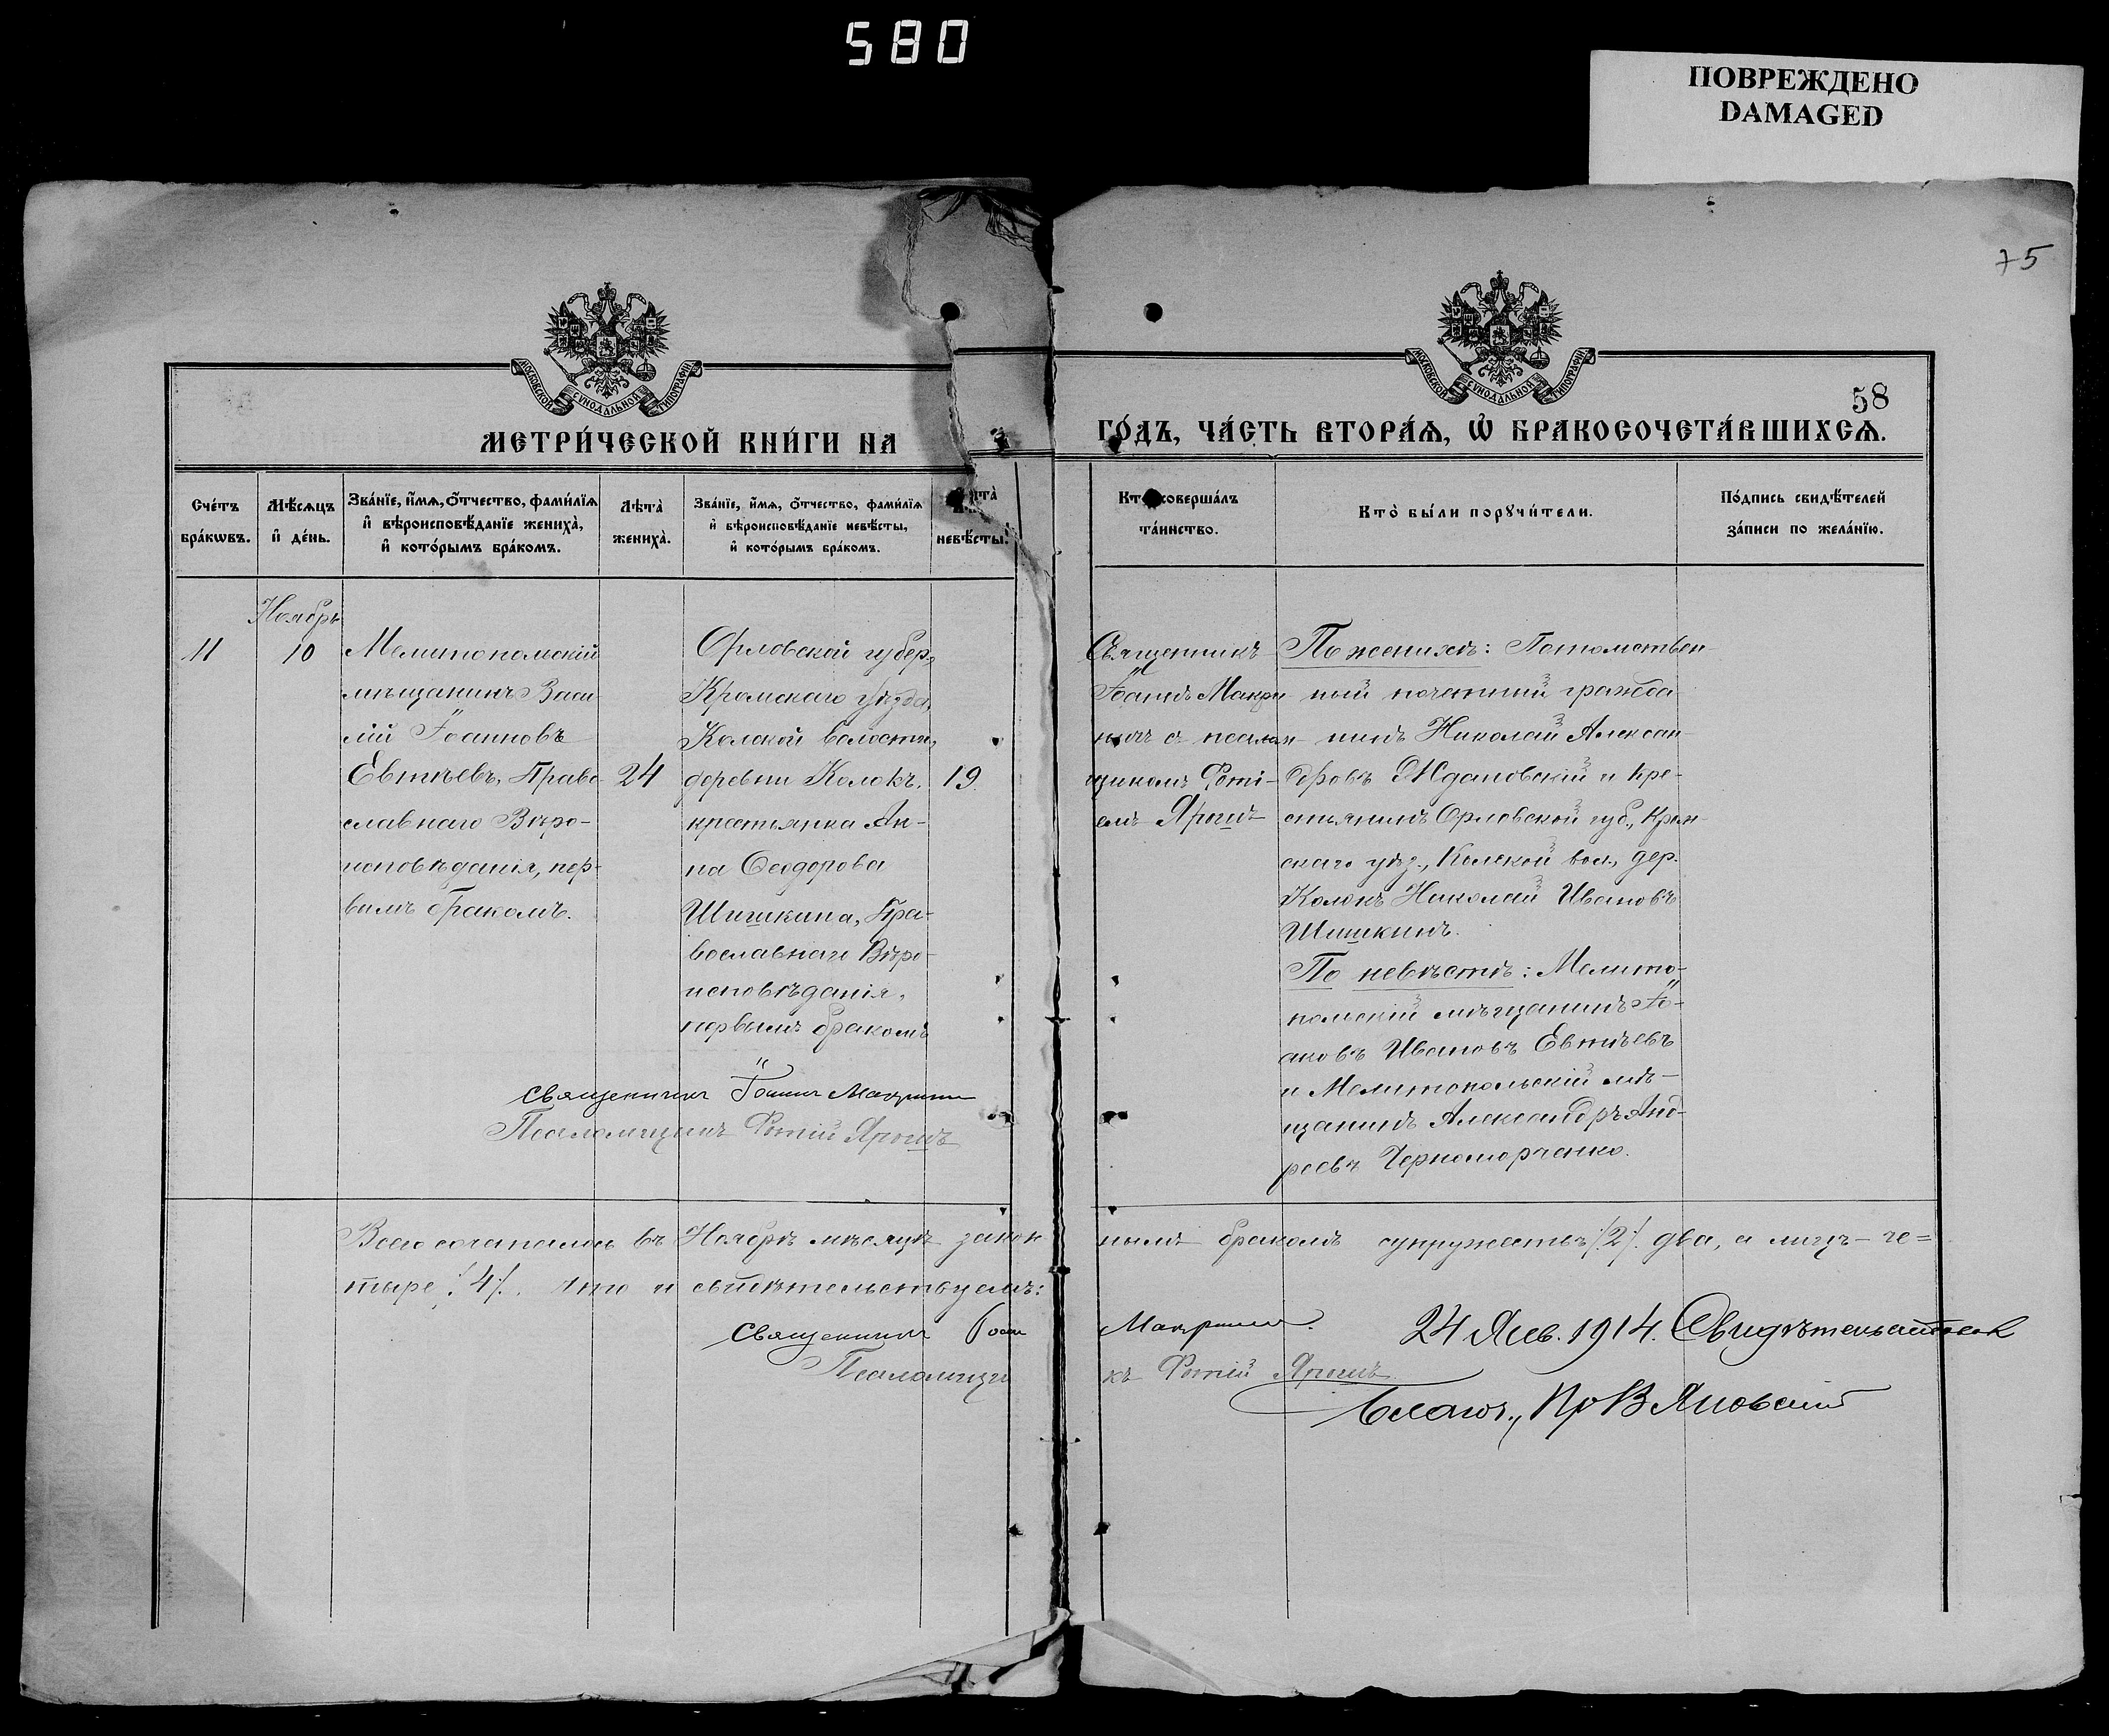 580
ПОВРЕЖДЕНО
DAMAGED
75
МОСКОВСКОЙ СУНОДАЛЬНОЙ ТИПОГРАФІИ
МОСКОВСКОЙ СУНОДАЛЬНОЙ ТИПОГРАФІИ
58
МЕТРИ́ЧЕСКОЙ КНИ́ГИ НА
ГО́ДЪ, ЧА́СТЬ ВТОРА́Ѧ, Ѡ҆ БРАКОСОЧЕТА́ВШИХСѦ.
Сче́тъ
бра́кѡвъ.
Мѣ́сѧцъ
и҆ де́нь.
Зва́нїе, и҆́мѧ, ѻ҆́тчество, фами́лїѧ
и҆ вѣроисповѣ́данїе жениха̀,
и҆ кото́рымъ бра́комъ.
Лѣ́та̀
жениха̀.
Зва́нїе, и҆́мѧ, ѻ҆́тчество, фами́лїѧ
и҆ вѣроисповѣ́данїе невѣ́сты,
и҆ кото́рымъ бра́комъ.
невѣ́сты.
совершáлъ
та́инство.
Кто̀ бы́ли порꙋчи́тели.
По́дпись свидѣ́телей
за́писи по жела́нїю.
11
Ноябрь
10
Мелитопомскій
мѣщанинъ Васи
лій Іоанновъ
Евтѣевъ, Право-
славнаго Вѣро-
исповѣданія, пер-
вымъ бракомъ.
24
Орловской губер,
Кромскаго уѣзда,
Колской волости,
деревни Колокъ,
крестьянка Ан-
на Ѳеодорова
Шишкина, Пра-
вославнаго Вѣро-
исповѣданія,
первымъ бракомъ
19.
Священникъ
Іоаннъ Макри
ничъ с псалом-
щикомъ Фоті-
емъ Ярошъ
По женихѣ: Потомствен-
ный почетный гражда-
нинъ Николай Алексан-
дровъ Ждановскій и кре-
стьянинъ Орловской губ., Кром-
скаго уѣз., Колской вол., дер.
Колокъ Николай Ивановъ
Шишкинъ.
По невѣстѣ: Мелито-
помскій мѣщанинъ Іо-
аковъ Ивановъ Евтѣевъ
и Мелитопольскій мѣ-
щанинъ Александръ Анд-
реевъ Черноморченко.
священникъ Іоаннъ
Псаломщикъ Фотій Ярошъ
Всего сочеталось въ Ноябрѣ мѣсяцѣ закон
нымъ бракомъ супружествъ /2/. два, а лицъ – че=
тыре /4/. что и свидѣтельствуемъ:
священникъ Іоан
Псаломщи
къ Фотій Ярошъ
24 Янв. 1914.
Благоч., Пр В Яновскій